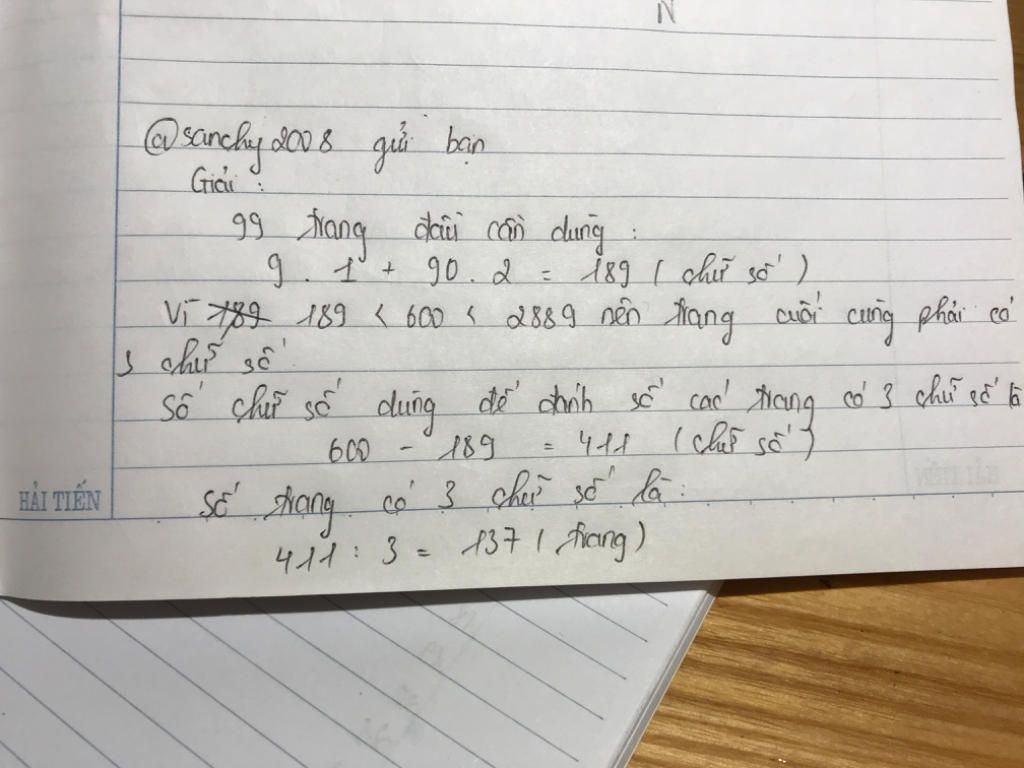 N
@sanchy2008 gửi bạn
Giải :
99 trang đầu cần dùng :
9 . 1 + 90 . 2 = 189 ( chữ số )
Vì 189 189 < 600 < 2889 nên trang cuối cùng phải có
3 chữ số
Số chữ số dùng để đánh số các trang có 3 chữ số là
600 - 189 = 411 ( chữ số )
Số trang có 3 chữ số là :
411 : 3 = 137 ( trang )
HẢI TIẾN